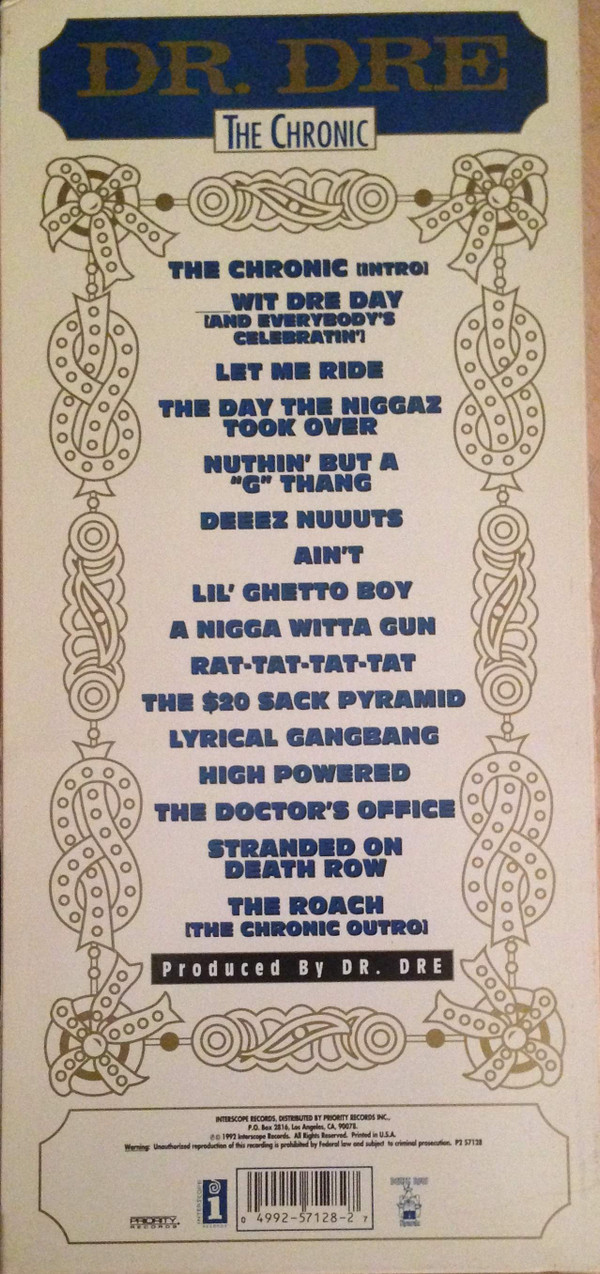 DR. DRE
THE CHRONIC
THE CHRONIC [INTRO]
___WIT DRE DAY
[AND EVERYBODY'S
CELEBRATIN']
LET ME RIDE
THE DAY THE NIGGAZ
TOOK OVER
NUTHIN' BUT A
"G" THANG
DEEEZ NUUUTS
AIN'T
LIL' GHETTO BOY
A NIGGA WITTA GUN
RAT-TAT-TAT-TAT
THE $20 SACK PYRAMID
LYRICAL GANGBANG
HIGH POWERED
THE DOCTOR'S OFFICE
STRANDED ON
DEATH ROW
THE ROACH
[THE CHRONIC OUTRO]
Produced By DR. DRE
INTERSCOPE RECORDS, DISTRIBUTED BY PRIORITY RECORDS INC.,
P.O. Box 2816, Los Angeles, CA, 90078.
℗© 1992 Interscope Records. All Rights Reserved. Printed in U.S.A.
Warning: Unauthorized reproduction of this recording is prohibited by Federal law and subject to criminal prosecution. P2 57128
PRIORITY
RECORDS
INTERSCOPE
RECORDS
i
0 4992-57128-2 7
DEATH ROW
Records